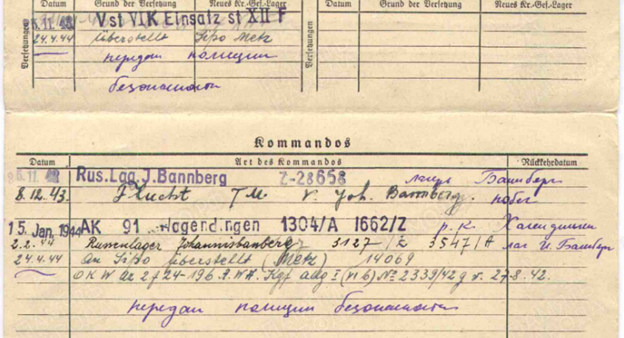 Datum Grund der Versetzung Neues Kr.-Gef.-Lager Datum Grund der Versetzung Neues Kr.-Gef.-Lager
Versetzungen
5. 11. 42 Vst VI/K Einsatz st XII F
24.4.44 überstellt Sipo Metz
передан полиции
безопасности
Versetzungen
Kommandos
Datum Art des Kommandos Rückkehrdatum
Rus. Lag. J. Bannberg Z-28658 лагерь Баннберг
8.12.43. Flucht v. Joh. Bannberg. побег
15. Jan. 1944 AK 91 Hagendingen 1304/A 1662/Z р. к. Хагендинген
2.2.44 Russenlager Johannisbannberg 3127/Z 3547/A лаг И. Баннберг
24.4.44 An Sipo überstellt (Metz) 14069
OKW Az 2 f 24-19 Kgf allg I (VI b) No 2339/42 g v. 27.8.42.
передан полиции безопасности